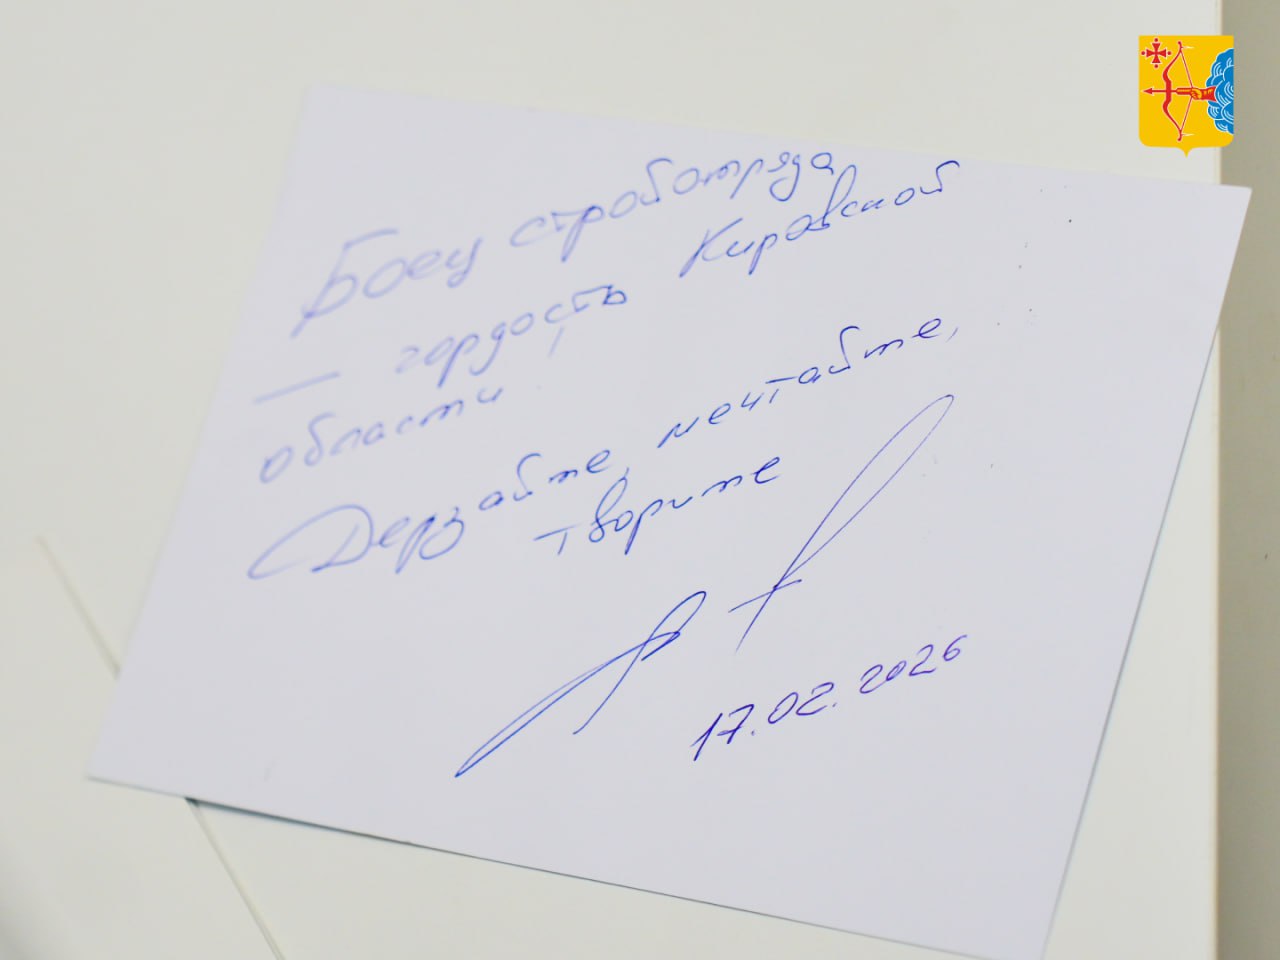 Боец строботряда
— гордость Кировской
области!
Дерзайте, мечтайте,
творите
17.02.2026